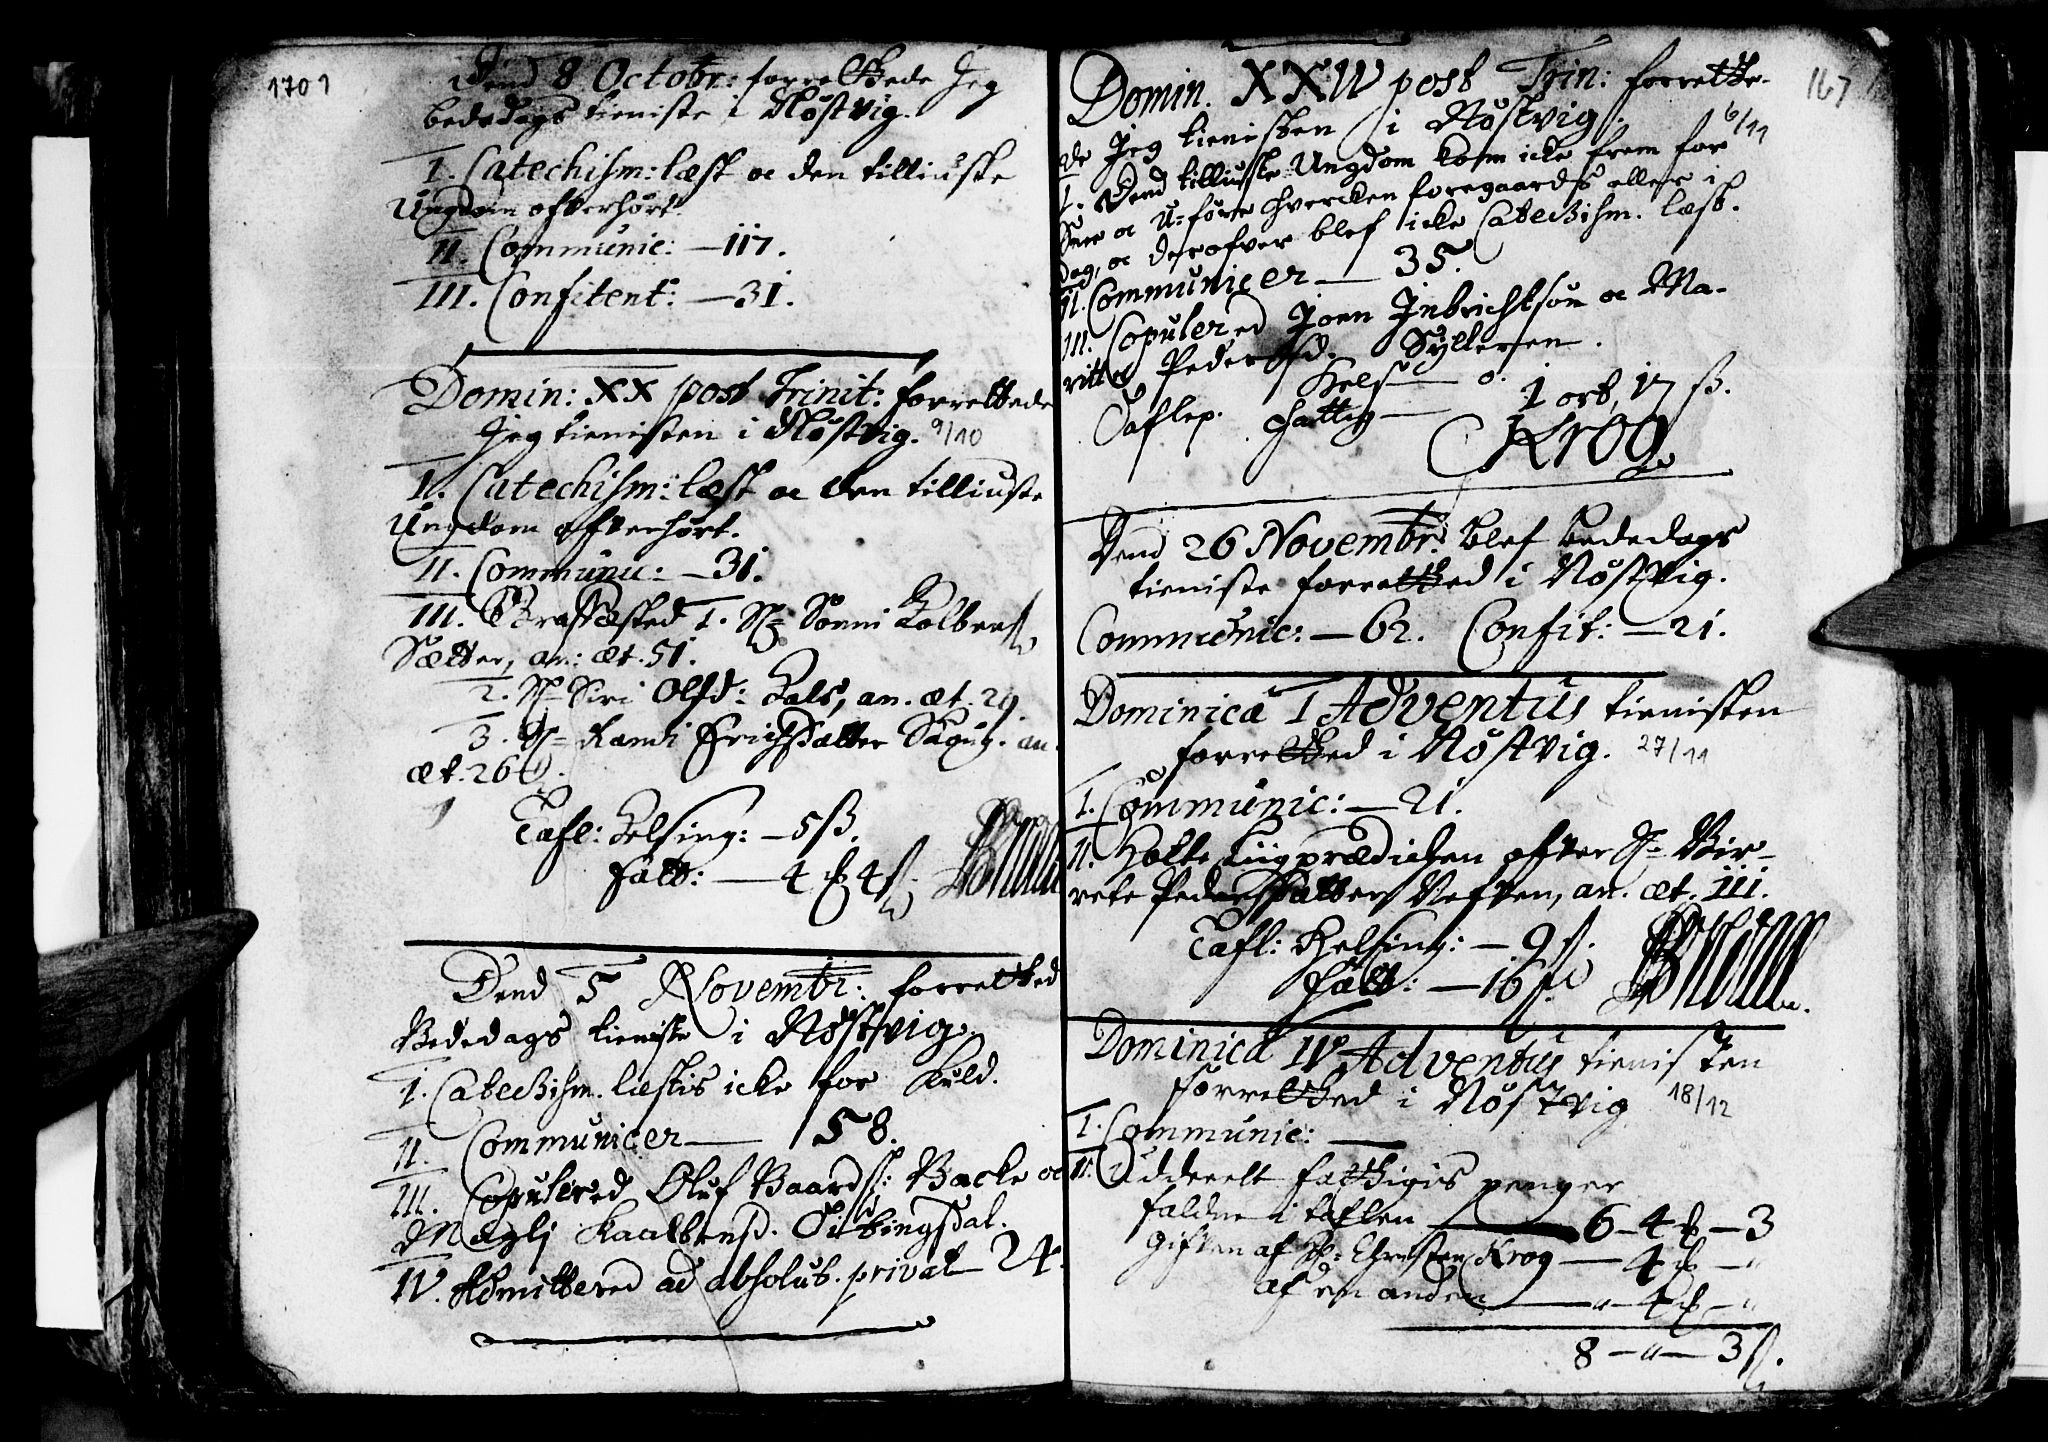 1701
Dend 8 Octobr: forrettede Jeg
bededags tieniste i Nøstvig.
I. Catechism: læst oc den tilliuste
Ungdom ofverhørt.
II. Communic: — 117.
III. Confitent: — 31.
Domin: XX post Trinit: forrettede
Jeg tienisten i Nøstvig. 9/10
I. Catechism: læst oc den tilliuste
Ungdom ofverhørt.
II. Communic: — 31.
III. Græsfæsted 1. Sl=
Sætter, an: æt. 51.
2. Sl= Siri Olsd: Hals, an. æt. 29.
3. Sl= Randi Erichsdatter an.
æt. 26
Tafl: Helsing: — 5 ß.
Fatt: — 4
Dend 5 Novembr: forretted
Bededags tieniste i Nøstvig.
I. Catechism. læstis icke for Kuld.
II. Communicer — 58.
III. Copulered Oluf Baards: Backe oc
IV. Admittered ad absolut. privat 24.
167
Domin. XXIV post Trin: forrette-
de Jeg tienisten i Nøstvig. 6/11
I. Dend tilliuste Ungdom kom icke frem for
Snee oc U-føre hvercken foregaards eller i
dag, oc derofver blef icke Catechism. læst.
II. Communicer — 35.
III. Copulered Joen Inbrichtsøn oc Ma-
ritte Pedersd. Sylteren.
Hels — 0.
Taflep. Fattig — 1 ort, 17 ß.
Krog
Dend 26 Novembr: blef bededags
tieniste forretted i Nøstvig.
Communic: — 62. Confit: — 21.
Dominica I Adventus tienisten
forretted i Nøstvig. 27/11
I. Communic: — 21.
II. Holte Liigprædichen ofver Sl= Bir-
rete Pedersdatter Neften, an. æt. 111.
Tafl: Helsing: — 9 ß.
Fatt: — 16 ß.
Dominica IV Adventus tienisten
forretted i Nøstvig 18/12
I. Communic: —
II. Udderelt fattigis penger
faldne i taflen — 6 – 4 – 3
Giften af Hr: Christen Krog — 4 – "
af en anden — " – 4 – "
8 – " – 3 ß.